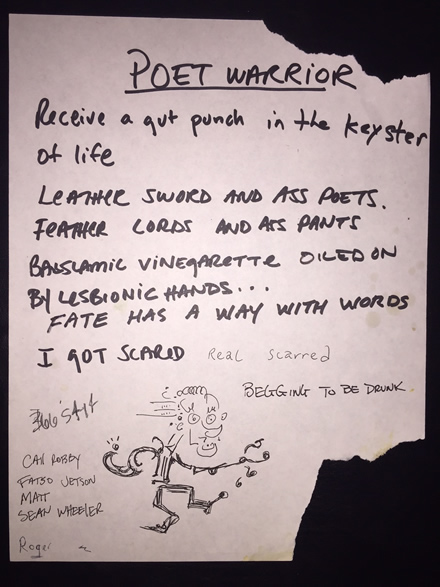 POET WARRIOR
Receive a gut punch in the keyster
of life
LEATHER SWORD AND ASS POETS.
FEATHER LORDS AND ASS PANTS
BALSLAMIC VINEGARETTE OILED ON
BY LESBIONIC HANDS...
FATE HAS A WAY WITH WORDS
I GOT SCARED Real Scarred
BEGGING TO BE DRUNK
CALL ROBBY
FATSO JETSON
MATT
SEAN WHEELER